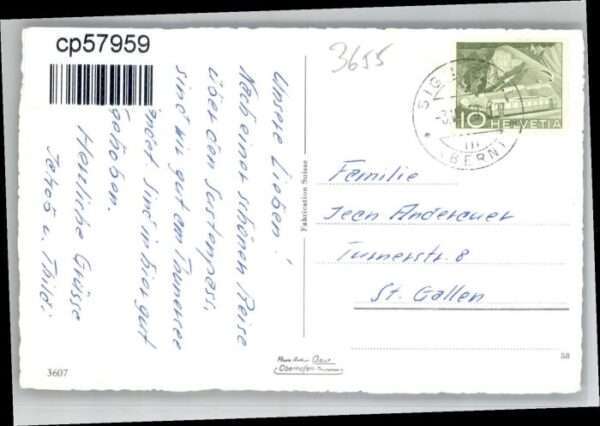 cp57959
3655
Unsere Lieben!
Nach einer schönen Reise
über den Sustenpass,
sind wir gut am Thunersee
sind hier gut
gehoben.
Herzliche Grüsse
u.
Fabrikation Suisse
SIG
(BERN)
10 HELVETIA
Familie
Jean Anderauer
Turnerstr. 8
St. Gallen
Oberhofen
3607
58